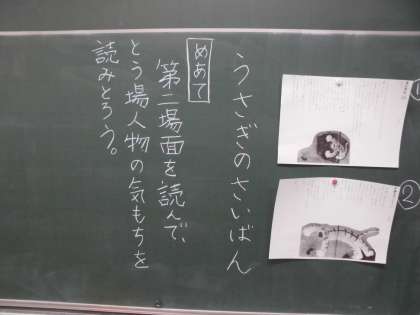 ①
②
うさぎのさいばん
めあて
第二場面を読んで、
とう場人物の気もちを
読みとろう。